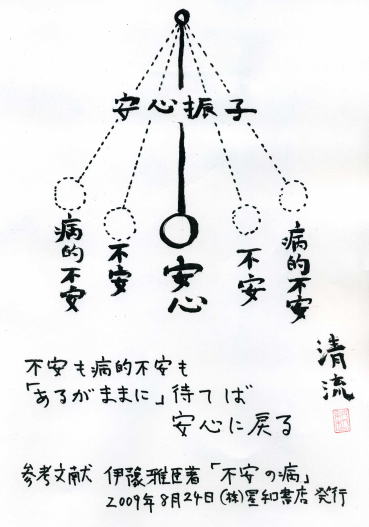 安心振子
病的不安
不安
安心
不安
病的不安
清流
不安も病的不安も
「あるがままに」待てば
安心に戻る
参考文献 伊豫雅臣著「不安の病」
2009年8月24日(株)星和書店 発行